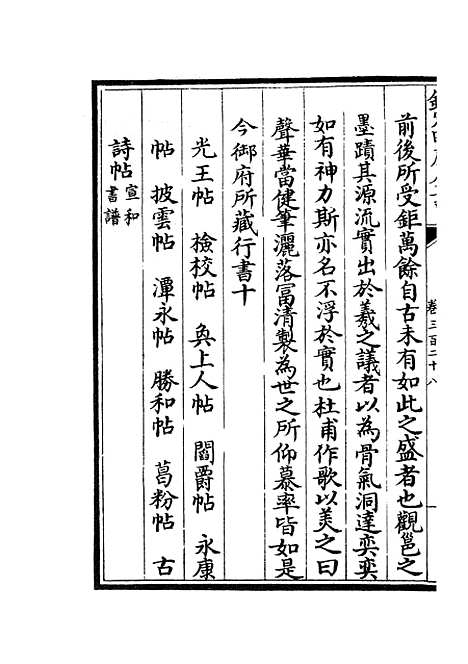 卷三百二十八
前後所受鉅萬餘自古未有如此之盛者也觀邕之
墨蹟其源流實出於羲之議者以為骨氣洞達奕奕
如有神力斯亦名不浮於實也杜甫作歌以美之曰
聲華當健筆灑落富清製為世之所仰慕率皆如是
今御府所藏行書十
光王帖　檢校帖　奐上人帖　閻爵帖　永康
帖　披雲帖　潭永帖　勝和帖　葛粉帖　古
詩帖宣和書譜